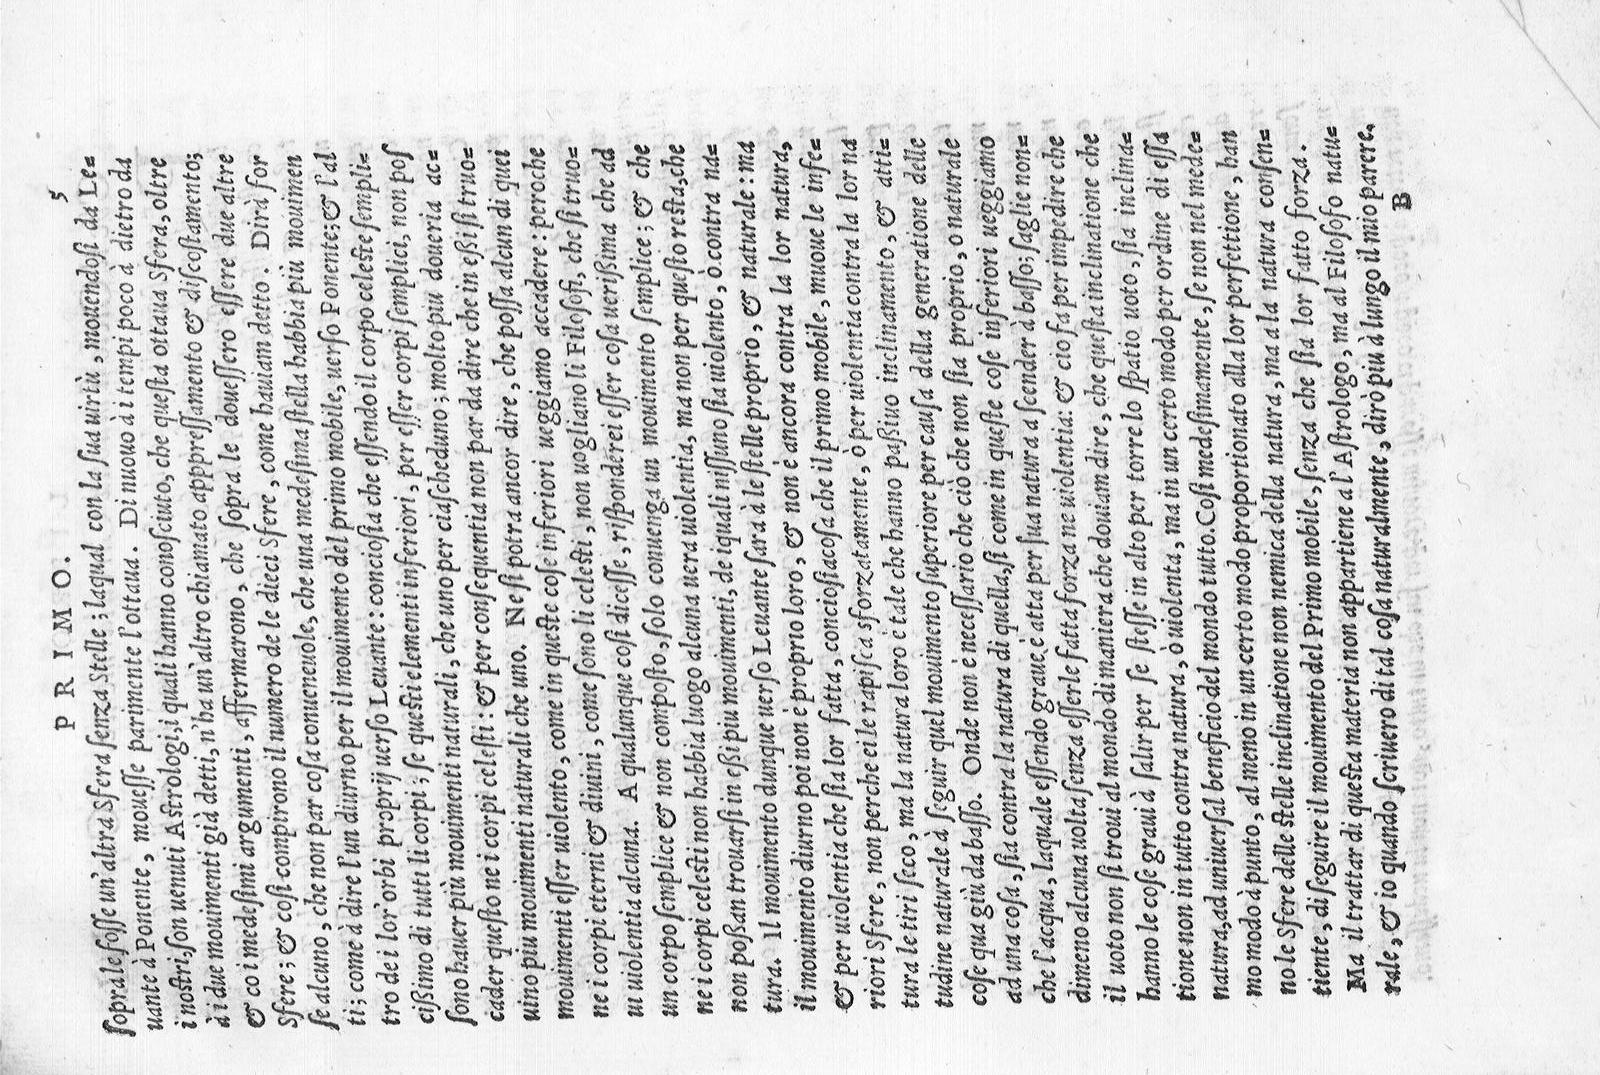 PRIMO. 5
ſopra le foſſe un'altra Sfera ſenza Stelle; laqual con la ſua uirtù, mouendoſi da Le=
uante à Ponente, moueſſe parimente l'ottaua. Di nuouo à i tempi poco à dietro da
i noſtri, ſon uenuti Aſtrologi, i quali hanno conoſciuto, che queſta ottaua Sfera, oltre
à i due mouimenti già detti, n'ha un'altro chiamato appreſſamento & diſcoſtamento;
& co i medeſimi argumenti, affermarono, che ſopra le doueſſero eſſere due altre
Sfere; & coſi compirono il numero de le dieci Sfere, come hauiam detto. Dirà for
ſe alcuno, che non par coſa conueneuole, che una medeſima ſtella habbia più mouimen
ti; come à dire l'un diurno per il mouimento del primo mobile, uerſo Ponente; & l'al
tro de i lor'orbi proprij uerſo Leuante: concioſia che eſſendo il corpo celeſte ſempli=
cißimo di tutti li corpi; ſe queſti elementi inferiori, per eſſer corpi ſemplici, non poſ
ſono hauer più mouimenti naturali, che uno per ciaſcheduno; molto più doueria ac=
cader queſto ne i corpi celeſti: & per conſequentia non par da dire che in eßi ſi truo=
uino piu mouimenti naturali che uno. Ne ſi potra ancor dire, che poſſa alcun di quei
mouimenti eſſer uiolento, come in queſte coſe inferiori ueggiamo accadere: peroche
ne i corpi eterni & diuini, come ſono li celeſti, non uogliano li Filoſofi, che ſi truo=
ui uiolentia alcuna. A qualunque coſi diceſſe, riſponderei eſſer coſa ueriſsima che ad
un corpo ſemplice & non compoſto, ſolo conuenga un mouimento ſemplice; & che
ne i corpi celeſti non habbia luogo alcuna uera uiolentia, ma non per queſto reſta, che
non poßan trouarſi in eßi piu mouimenti, de i quali niſſuno ſia uiolento, ò contra na=
tura. Il mouimento dunque uerſo Leuante ſarà à le ſtelle proprio, & naturale: ma
il mouimento diurno poi non è proprio loro, & non è ancora contra la lor natura,
& per uiolentia che ſia lor fatta, concioſiacoſa che il primo mobile, muoue le infe=
riori Sfere, non perche ei le rapiſca sforzatamente, ò per uiolentia contra la lor na
tura le tiri ſeco, ma la natura loro è tale che hanno paßiuo inclinamento, & atti=
tudine naturale à ſeguir quel mouimento ſuperiore per cauſa della generatione delle
coſe qua giù da baſſo. Onde non è neceſſario che ciò che non ſia proprio, o naturale
ad una coſa, ſia contra la natura di quella, ſi come in queſte coſe inferiori ueggiamo
che l'acqua, laquale eſſendo graue, è atta per ſua natura à ſcender à baſſo; ſaglie non=
dimeno alcuna uolta ſenza eſſerle fatta forza ne uiolentia: & cio fa per impedire che
il uoto non ſi troui al mondo di maniera che douiam dire, che queſta inclinatione che
hanno le coſe graui à ſalir per ſe ſteſſe in alto per torre lo ſpatio uoto, ſia inclina=
tione non in tutto contra natura, ò uiolenta, ma in un certo modo per ordine di eſſa
natura, ad uniuerſal beneficio del mondo tutto. Coſi medeſimamente, ſe non nel mede=
mo modo à punto, al meno in un certo modo proportionato alla lor perfettione, han
no le Sfere delle ſtelle inclinatione non nemica della natura, ma a la natura conſen=
tiente, di ſeguire il mouimento del Primo mobile, ſenza che ſia lor fatto forza.
Ma il trattar di queſta materia non appartiene al'Aſtrologo, ma al Filoſofo natu=
rale, & io quando ſcriuero di tal coſa naturalmente, dirò più à lungo il mio parere,
B